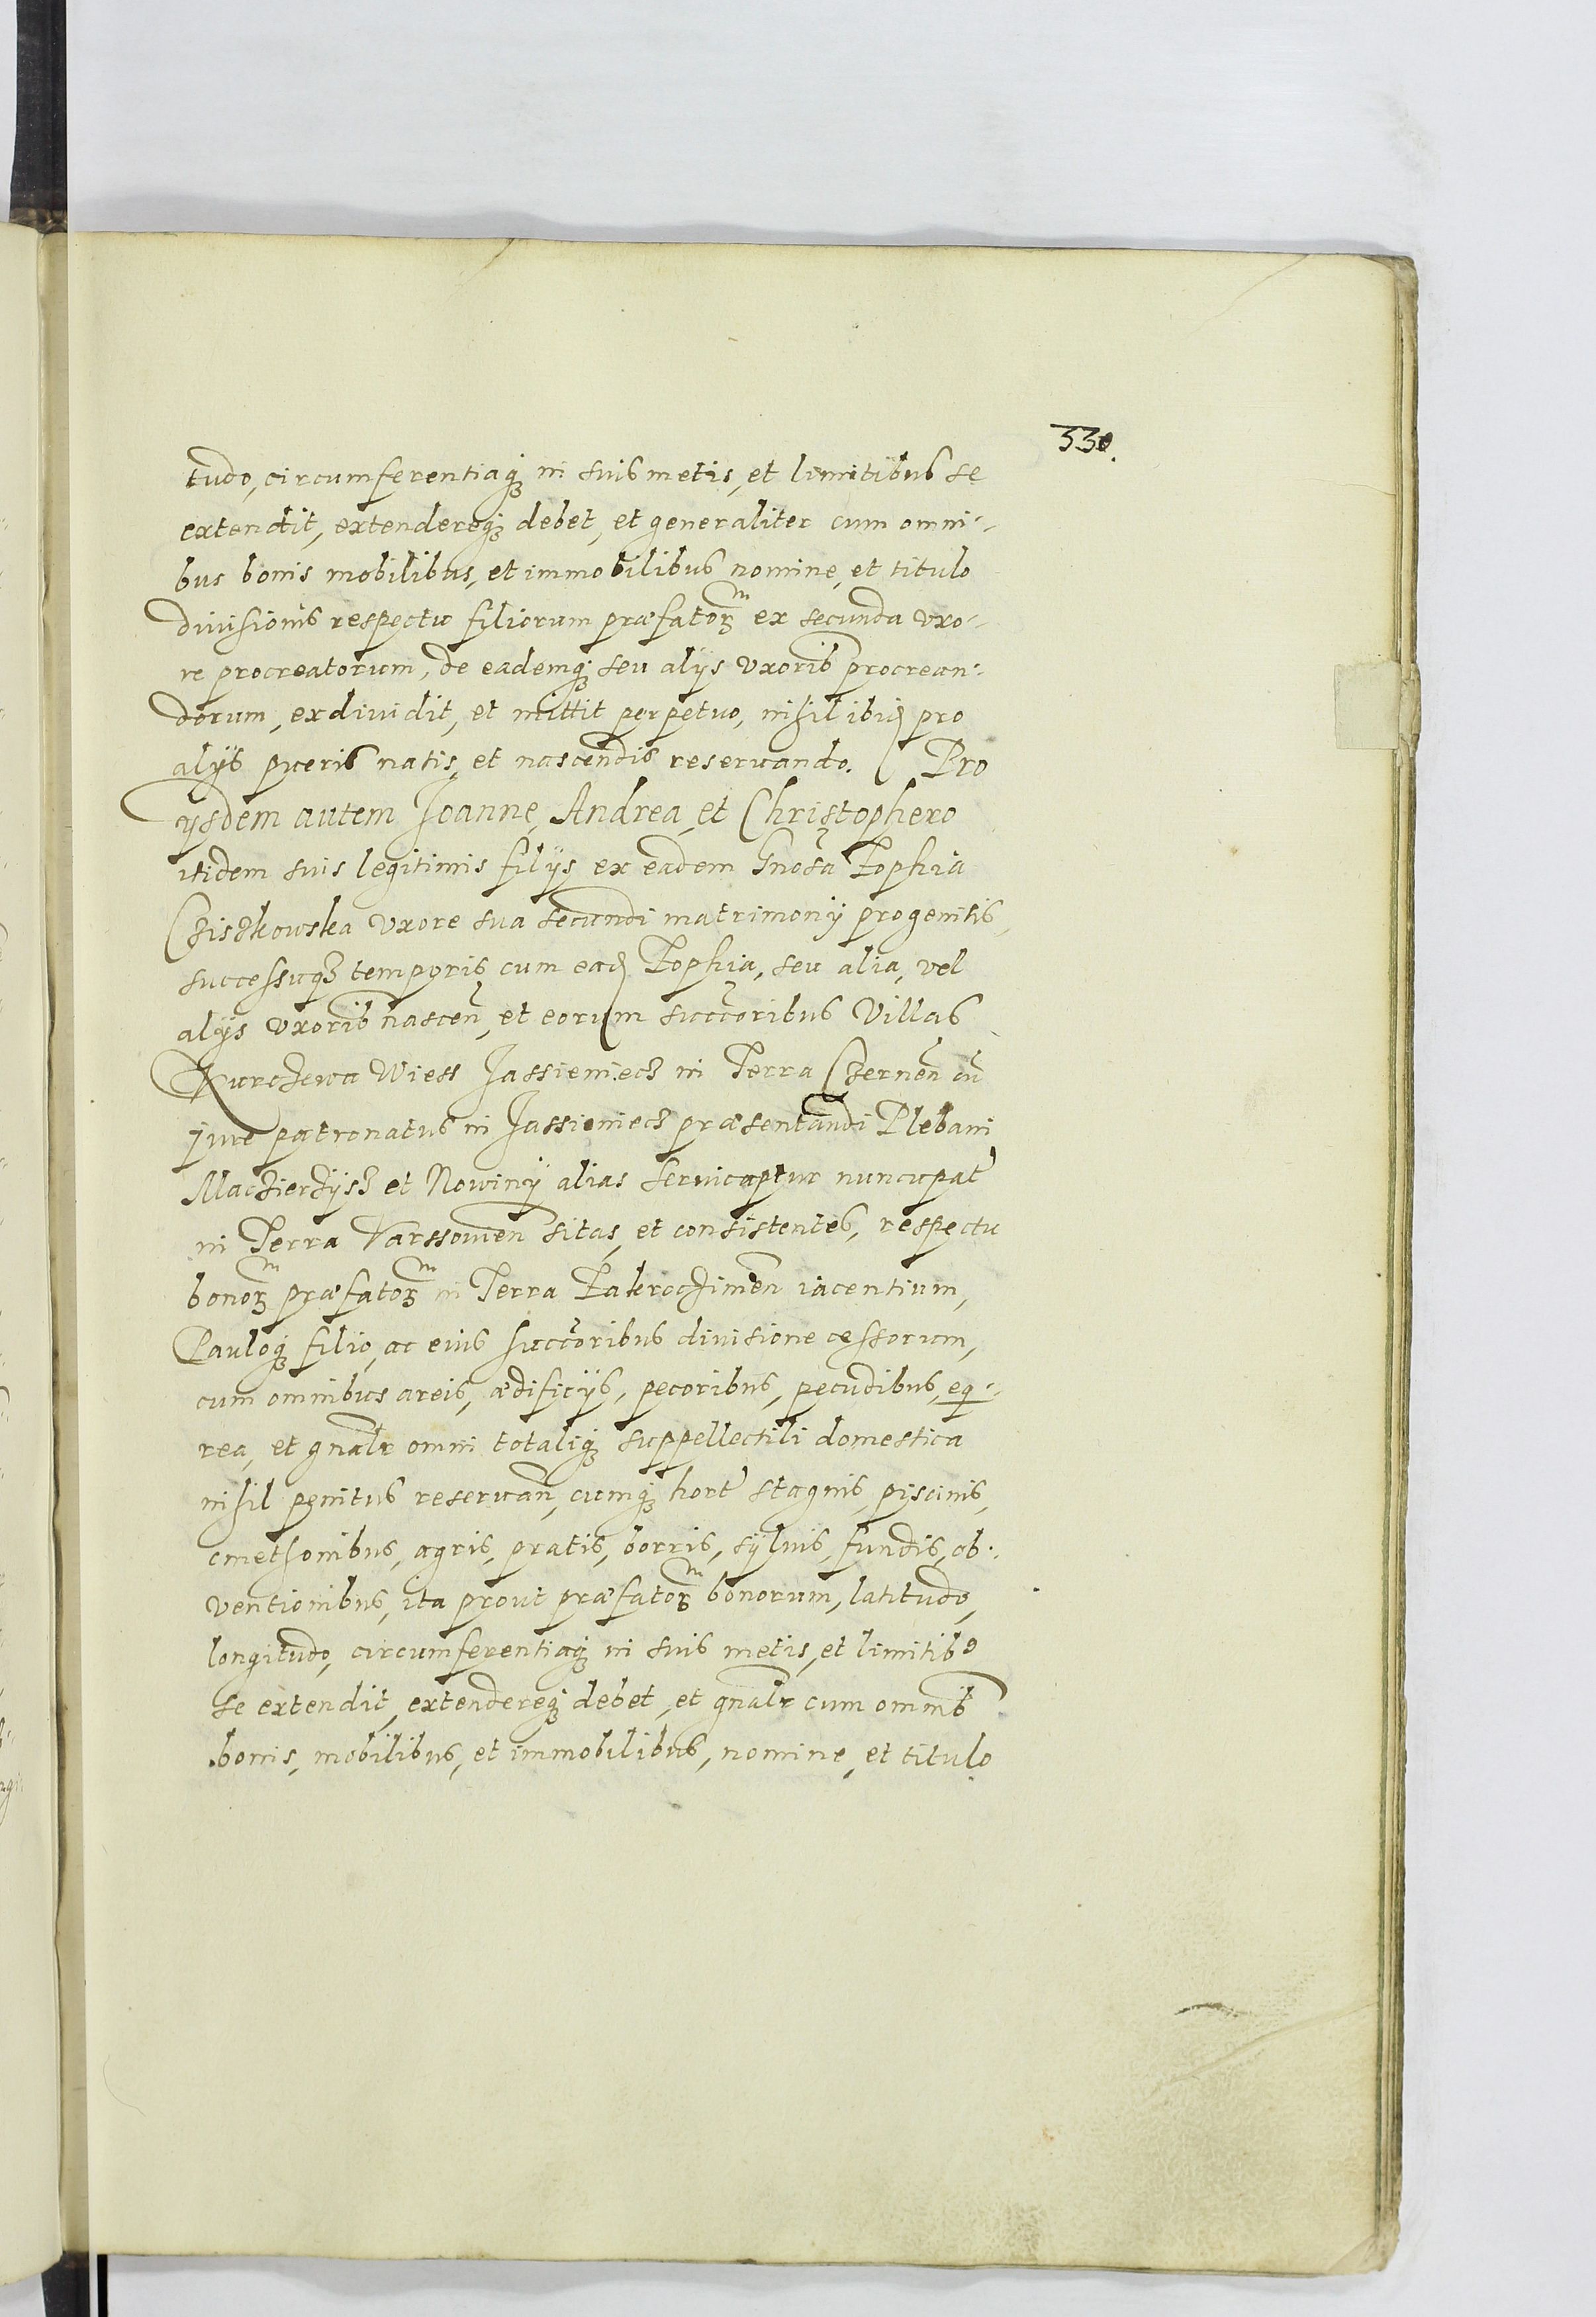 330.
tudo, circumferentiaqꝫ in suis metis, et limitibus se
extendit, extendereqꝫ debet, et generaliter cum omni-
bus bonis mobilibus, et immobilibus nomine, et titulo
diuisionis respectu filiorum præfatorꝫ ex secunda vxo-
re procreatorum, de eademqꝫ seu alijs vxorib procrean-
dorum, exdiuidit, et mittit perpetuo, nihil ibid pro
alijs pueris natis, et nascendis reseruando. Pro
ijsdem autem Joanne, Andrea, et Christophero
itidem suis legitimis filijs ex eadem Gnosa Zophia
Cziszkowska vxore sua secundi matrimonij progenitis,
successuqꝫ temporis cum ead Zophia, seu alia, vel
alijs vxorib nascen, et eorum succoribus Villas
Kurczewa Wiess Jassieniecz in Terra Czernen cu
jure patronatus in Jassieniecz præsentandi Plebani
Maczierzysz et Nowiny alias seruicaptur nuncupat
in Terra Varssouien sitas, et consistentes, respectu
bonorꝫ præfatorꝫ in Terra Zakroczimen iacentium,
Pauloqꝫ filio, ac eius succoribus diuisione cessorum,
cum omnibus areis, ædificijs, pecoribus, pecudibus, eq-
rea, et gnalr omni totaliqꝫ suppellectili domestica
nihil penitus reseruan, cumqꝫ hort stagnis, piscinis,
cmethonibus, agris, pratis, borris, syluis, fundis, ob-
ventionibus, ita prout præfatorꝫ bonorum, latitudo,
longitudo, circumferentiaqꝫ in suis metis, et limitibꝰ
se extendit, extendereqꝫ debet, et gnalr cum omnib
bonis, mobilibus, et immobilibus, nomine, et titulo